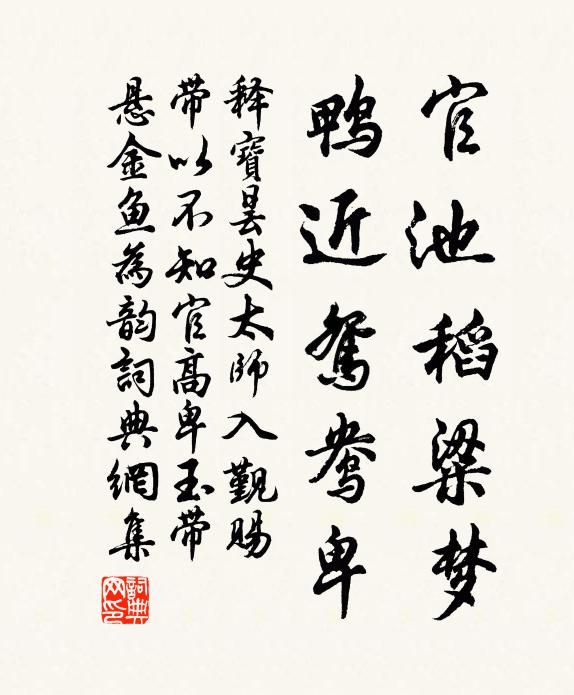 官池稻粱梦
鸭近鸳鸯卑
释寶昙史太师入觐赐
带以不知官高卑玉带
悬金鱼為韵詞典網集
詞典網印